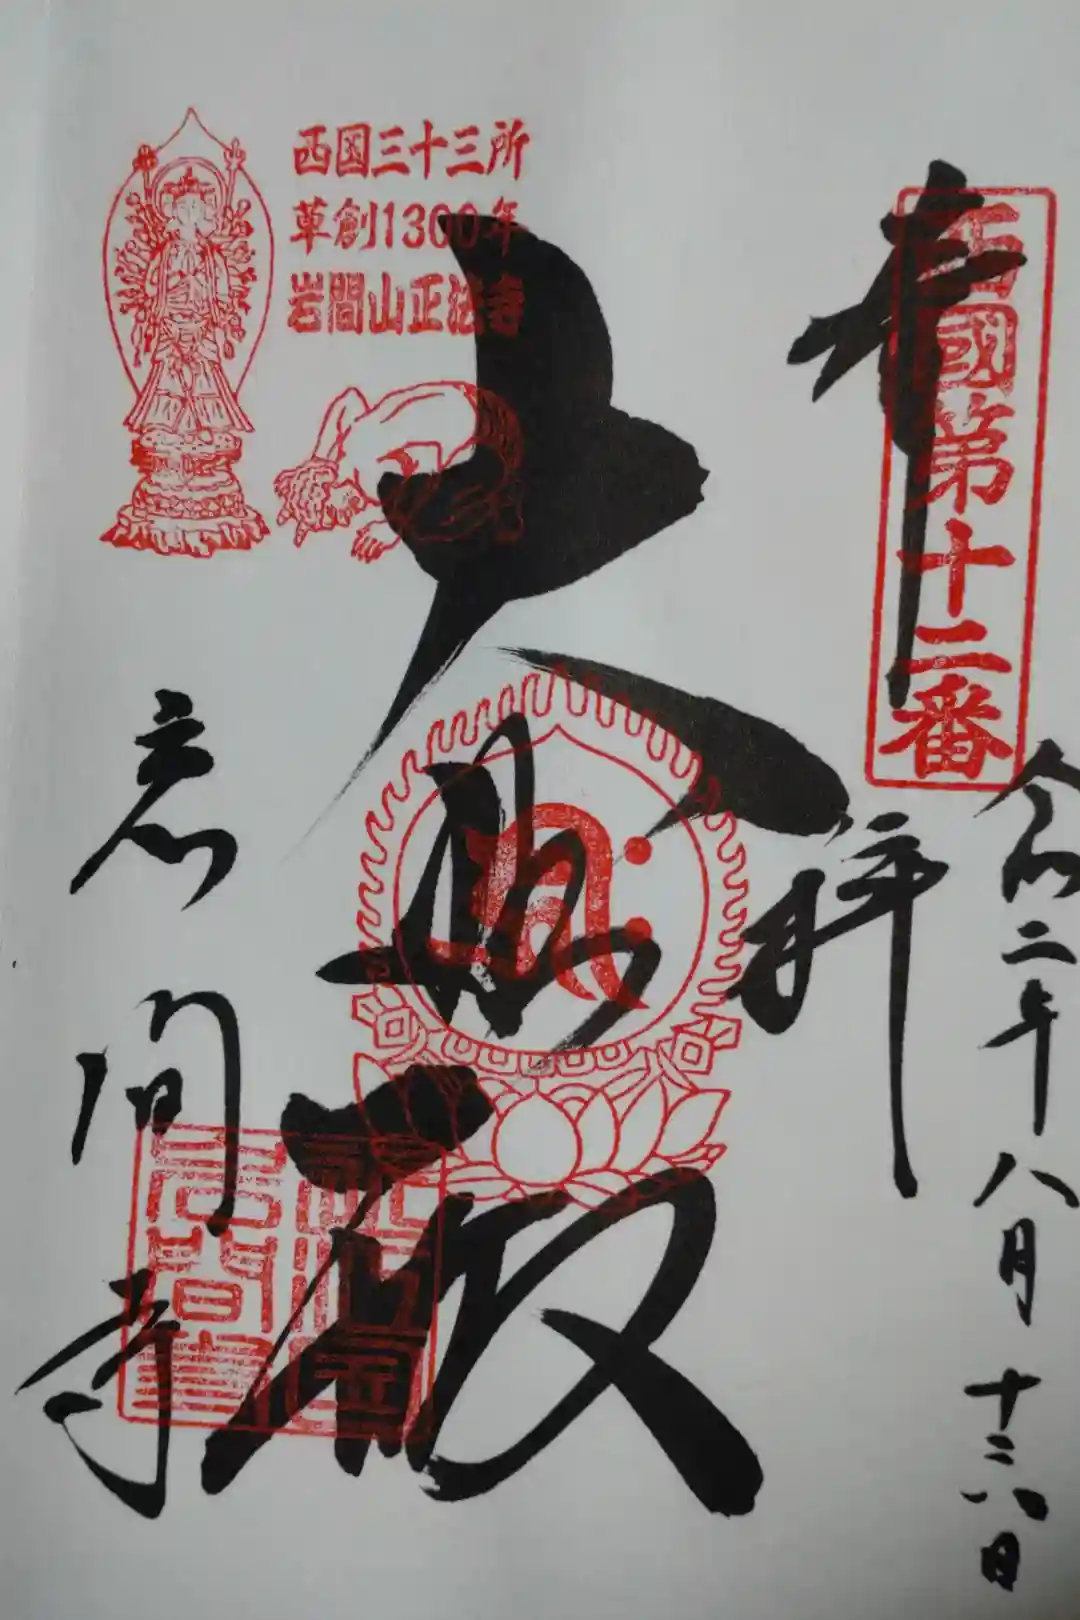 令和二年八月十六日
奉拝
西國第十二番
大悲殿
西国三十三所
草創1300年
岩間山正法寺
岩間寺